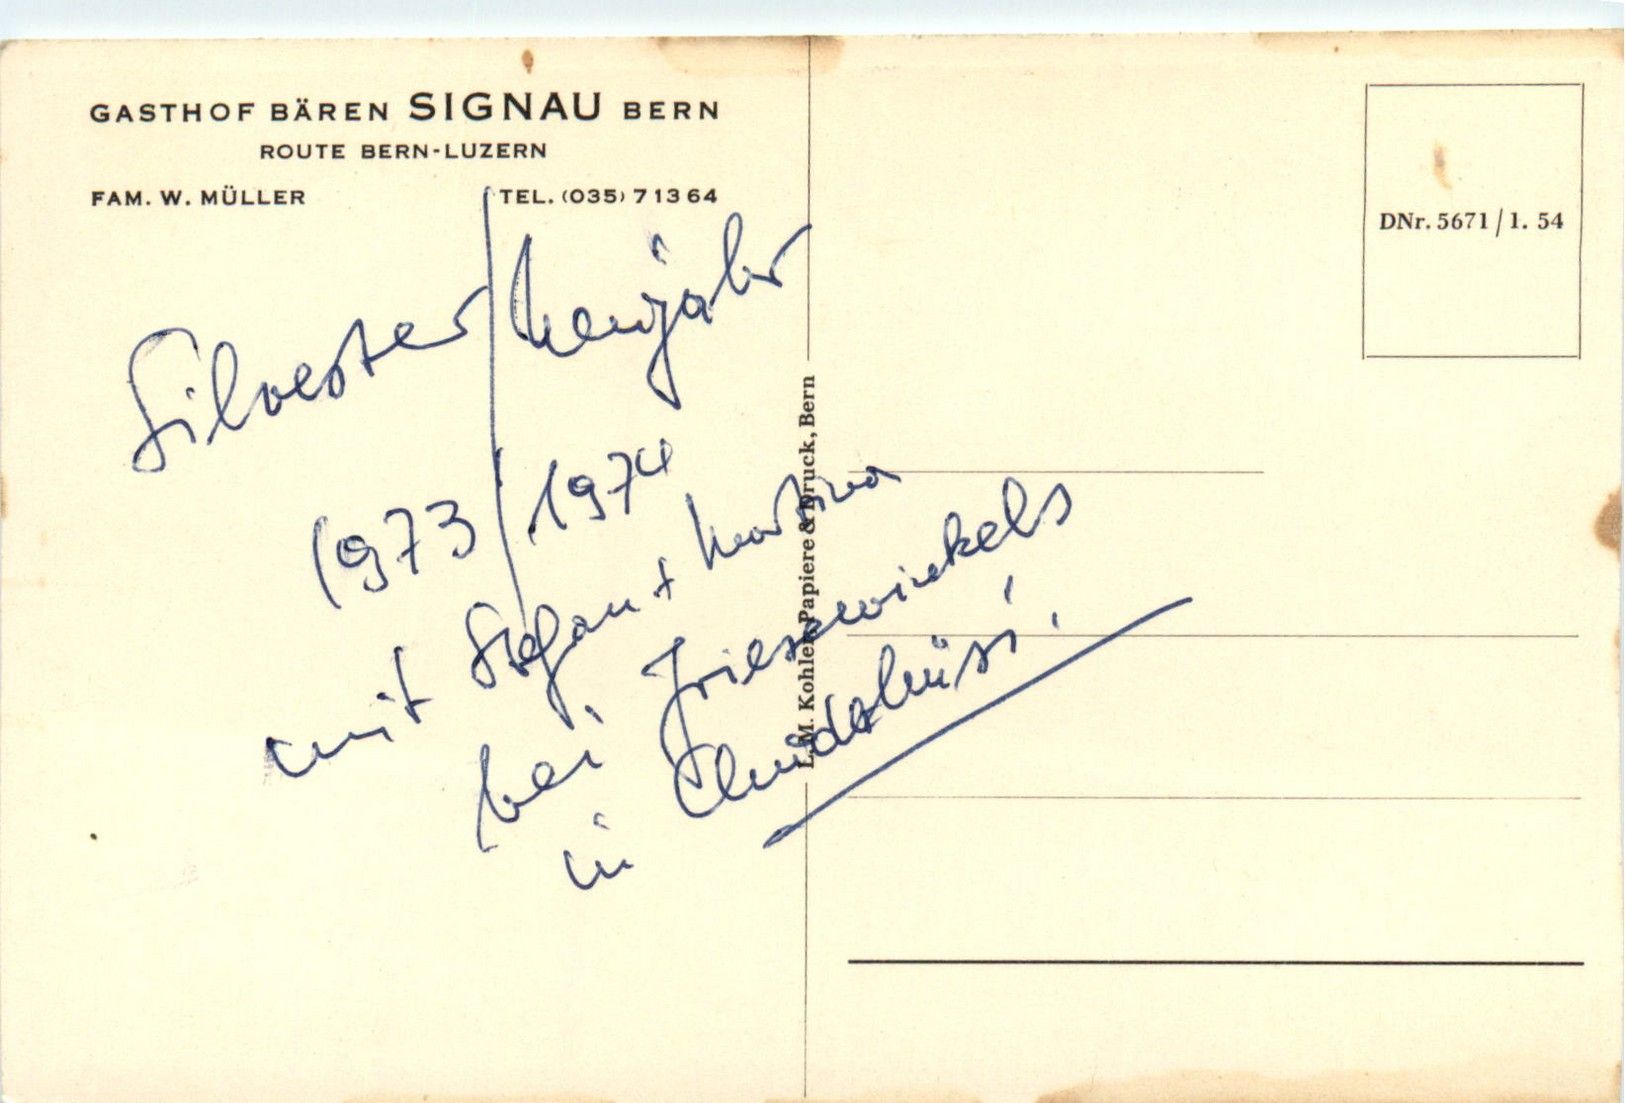 GASTHOF BÄREN SIGNAU BERN
ROUTE BERN-LUZERN
FAM. W. MÜLLER TEL. (035) 7 13 64
DNr. 5671/1. 54
Silvester/Neujahr
1973/1974
mit Stefan + Martina
bei Friesewinkels
in
L. M. Kohler, Papiere & Druck, Bern